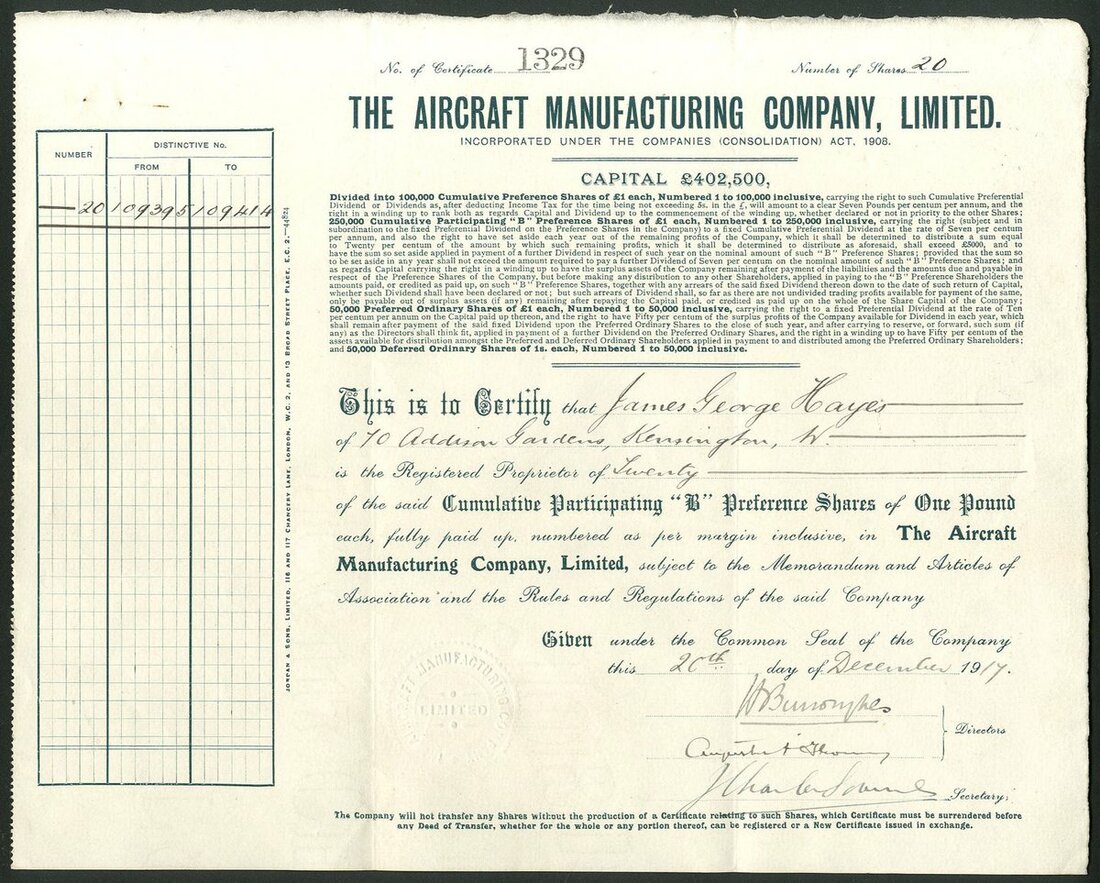 No. of Certificate 1329 Number of Shares 20
THE AIRCRAFT MANUFACTURING COMPANY, LIMITED.
INCORPORATED UNDER THE COMPANIES (CONSOLIDATION) ACT, 1908.
CAPITAL £402,500,
Divided into 100,000 Cumulative Preference Shares of £1 each, Numbered 1 to 100,000 inclusive, carrying the right to such Cumulative Preferential
Dividend or Dividends as, after deducting Income Tax for the time being not exceeding 5s. in the £, will amount to a clear Seven Pounds per centum per annum, and the
right in a winding up to rank both as regards Capital and Dividend up to the commencement of the winding up, whether declared or not in priority to the other Shares;
250,000 Cumulative Participating "B" Preference Shares of £1 each, Numbered 1 to 250,000 inclusive, carrying the right (subject and in
subordination to the fixed Preferential Dividend on the Preference Shares in the Company) to a fixed Cumulative Preferential Dividend at the rate of Seven per centum
per annum, and also the right to have set aside each year out of the remaining profits of the Company, which it shall be determined to distribute a sum equal
to Twenty per centum of the amount by which such remaining profits, which it shall be determined to distribute as aforesaid, shall exceed £5000, and to
have the sum so set aside applied in payment of a further Dividend in respect of such year on the nominal amount of such "B" Preference Shares; provided that the sum so
to be set aside in any year shall not exceed the amount required to pay a further Dividend of Seven per centum on the nominal amount of such "B" Preference Shares; and
as regards Capital carrying the right in a winding up to have the surplus assets of the Company remaining after payment of the liabilities and the amounts due and payable in
respect of the Preference Shares of the Company, but before making any distribution to any other Shareholders, applied in paying to the "B" Preference Shareholders the
amounts paid, or credited as paid up, on such "B" Preference Shares, together with any arrears of the said fixed Dividend thereon down to the date of such return of Capital,
whether such Dividend shall have been declared or not; but such arrears of Dividend shall, so far as there are not undivided trading profits available for payment of the same,
only be payable out of surplus assets (if any) remaining after repaying the Capital paid, or credited as paid up on the whole of the Share Capital of the Company;
50,000 Preferred Ordinary Shares of £1 each, Numbered 1 to 50,000 inclusive, carrying the right to a fixed Preferential Dividend at the rate of Ten
per centum per annum on the Capital paid up thereon, and the right to have Fifty per centum of the surplus profits of the Company available for Dividend in each year, which
shall remain after payment of the said fixed Dividend upon the Preferred Ordinary Shares to the close of such year, and after carrying to reserve, or forward, such sum (if
any) as the Directors shall think fit, applied in payment of a further Dividend on the Preferred Ordinary Shares, and the right in a winding up to have Fifty per centum of the
assets available for distribution amongst the Preferred and Deferred Ordinary Shareholders applied in payment to and distributed among the Preferred Ordinary Shareholders;
and 50,000 Deferred Ordinary Shares of 1s. each, Numbered 1 to 50,000 inclusive.
NUMBER DISTINCTIVE No.
FROM TO
20 109395 109414
JORDAN & SONS, LIMITED, 116 AND 117 CHANCERY LANE, LONDON, W.C. 2, AND 13 BROAD STREET PLACE, E.C. 2.—44824
This is to Certify that James George Hayes
of 70 Addison Gardens, Kensington, W.
is the Registered Proprietor of Twenty
of the said Cumulative Participating "B" Preference Shares of One Pound
each, fully paid up, numbered as per margin inclusive, in The Aircraft
Manufacturing Company, Limited, subject to the Memorandum and Articles of
Association and the Rules and Regulations of the said Company
Given under the Common Seal of the Company
this 20th day of December 1917.
MANUFACTURING
LIMITED
H Burroughes
Directors
Secretary,
The Company will not transfer any Shares without the production of a Certificate relating to such Shares, which Certificate must be surrendered before
any Deed of Transfer, whether for the whole or any portion thereof, can be registered or a New Certificate issued in exchange.